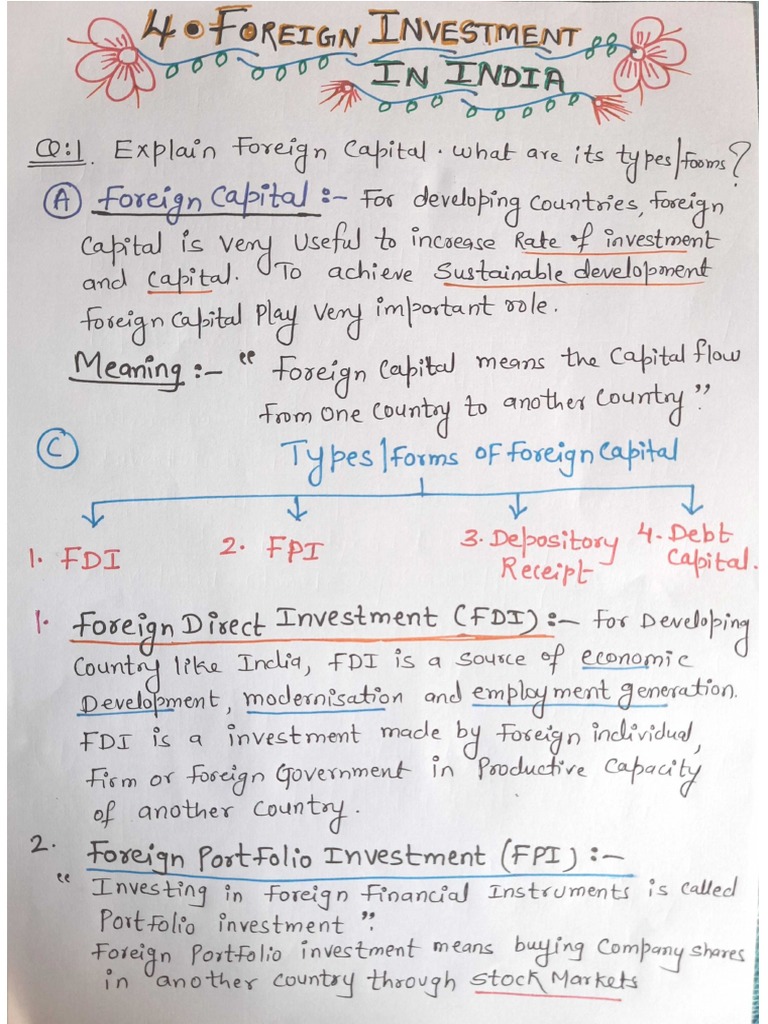 4. FOREIGN INVESTMENT
IN INDIA
Q:1. Explain Foreign Capital. what are its types/forms?
(A) Foreign Capital :- For developing countries, foreign
Capital is very useful to increase Rate of investment
and Capital. To achieve Sustainable development
foreign capital play very important role.
Meaning :- "Foreign capital means the capital flow
from one country to another country"
(C) Types/forms of foreign capital
1. FDI 2. FPI 3. Depository Receipt 4. Debt Capital.
1. Foreign Direct Investment (FDI) :- for Developing
Country like India, FDI is a source of economic
Development, modernisation and employment generation.
FDI is a investment made by foreign individual,
firm or foreign Government in Productive Capacity
of another country.
2. Foreign Portfolio Investment (FPI) :-
"Investing in foreign financial Instruments is called
Portfolio investment".
Foreign Portfolio investment means buying company shares
in another country through stock Markets